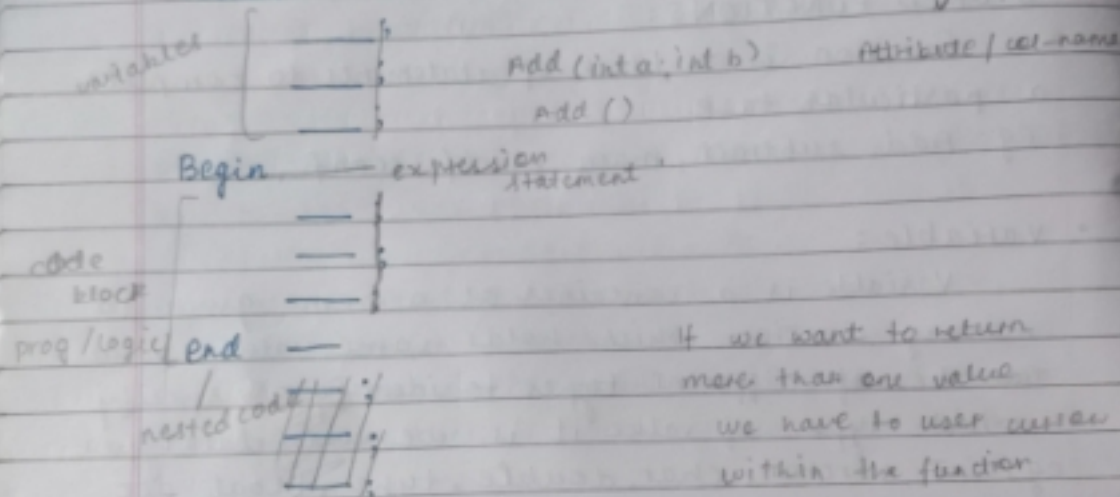 variables
Add (int a; int b) Attribute / col-name
Add ()
Begin — expression
statement
code
block
prog /logic end —
nested code
If we want to return
more than one value
we have to user
within the function